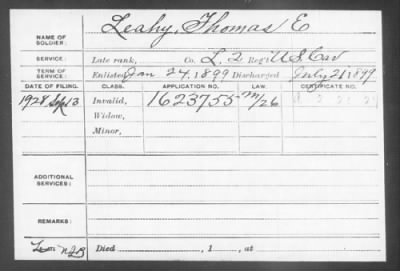 Leahy, Thomas E
NAME OF
SOLDIER:
SERVICE: Late rank, Co. L. 2 Reg't U.S. Cav
TERM OF
SERVICE: Enlisted Jan 24, 1899 Discharged July 21 1899
DATE OF FILING. CLASS. APPLICATION NO. LAW. CERTIFICATE NO.
1928 Sep 13 Invalid, 1623755 M/26
Widow,
Minor,
ADDITIONAL
SERVICES:
REMARKS:
Died , 1 , at